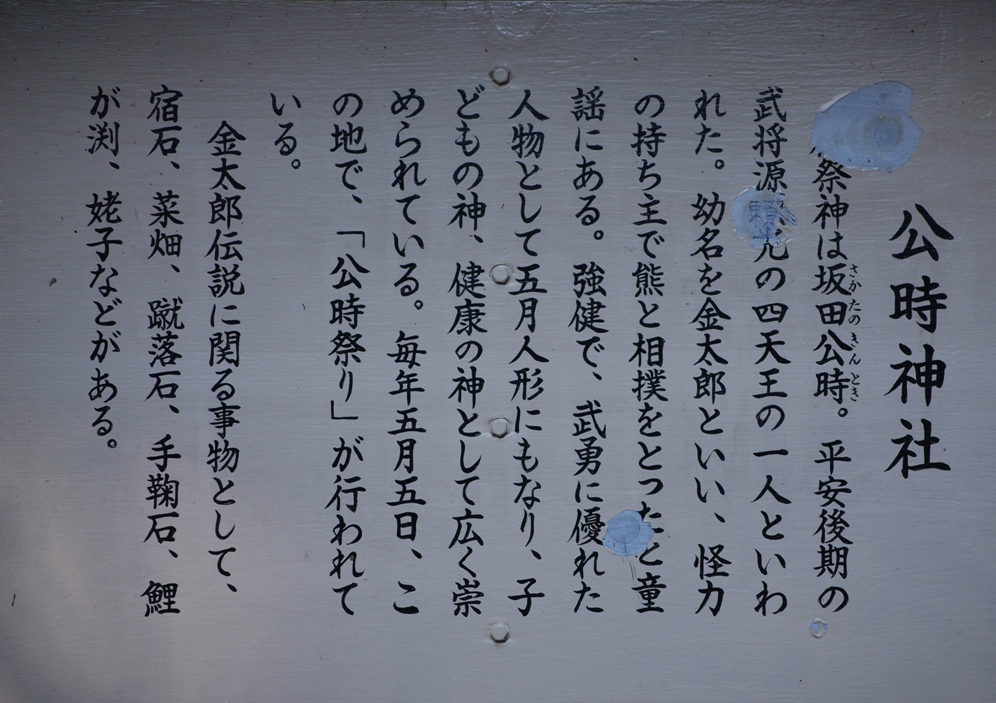 公時神社
祭神は坂田公時。平安後期の
さかたのきんとき
武将源頼光の四天王の一人といわ
れた。幼名を金太郎といい、怪力
の持ち主で熊と相撲をとったと童
謡にある。強健で、武勇に優れた
人物として五月人形にもなり、子
どもの神、健康の神として広く崇
められている。毎年五月五日、こ
の地で、「公時祭り」が行われて
いる。
金太郎伝説に関る事物として、
宿石、菜畑、蹴落石、手鞠石、鯉
が渕、姥子などがある。